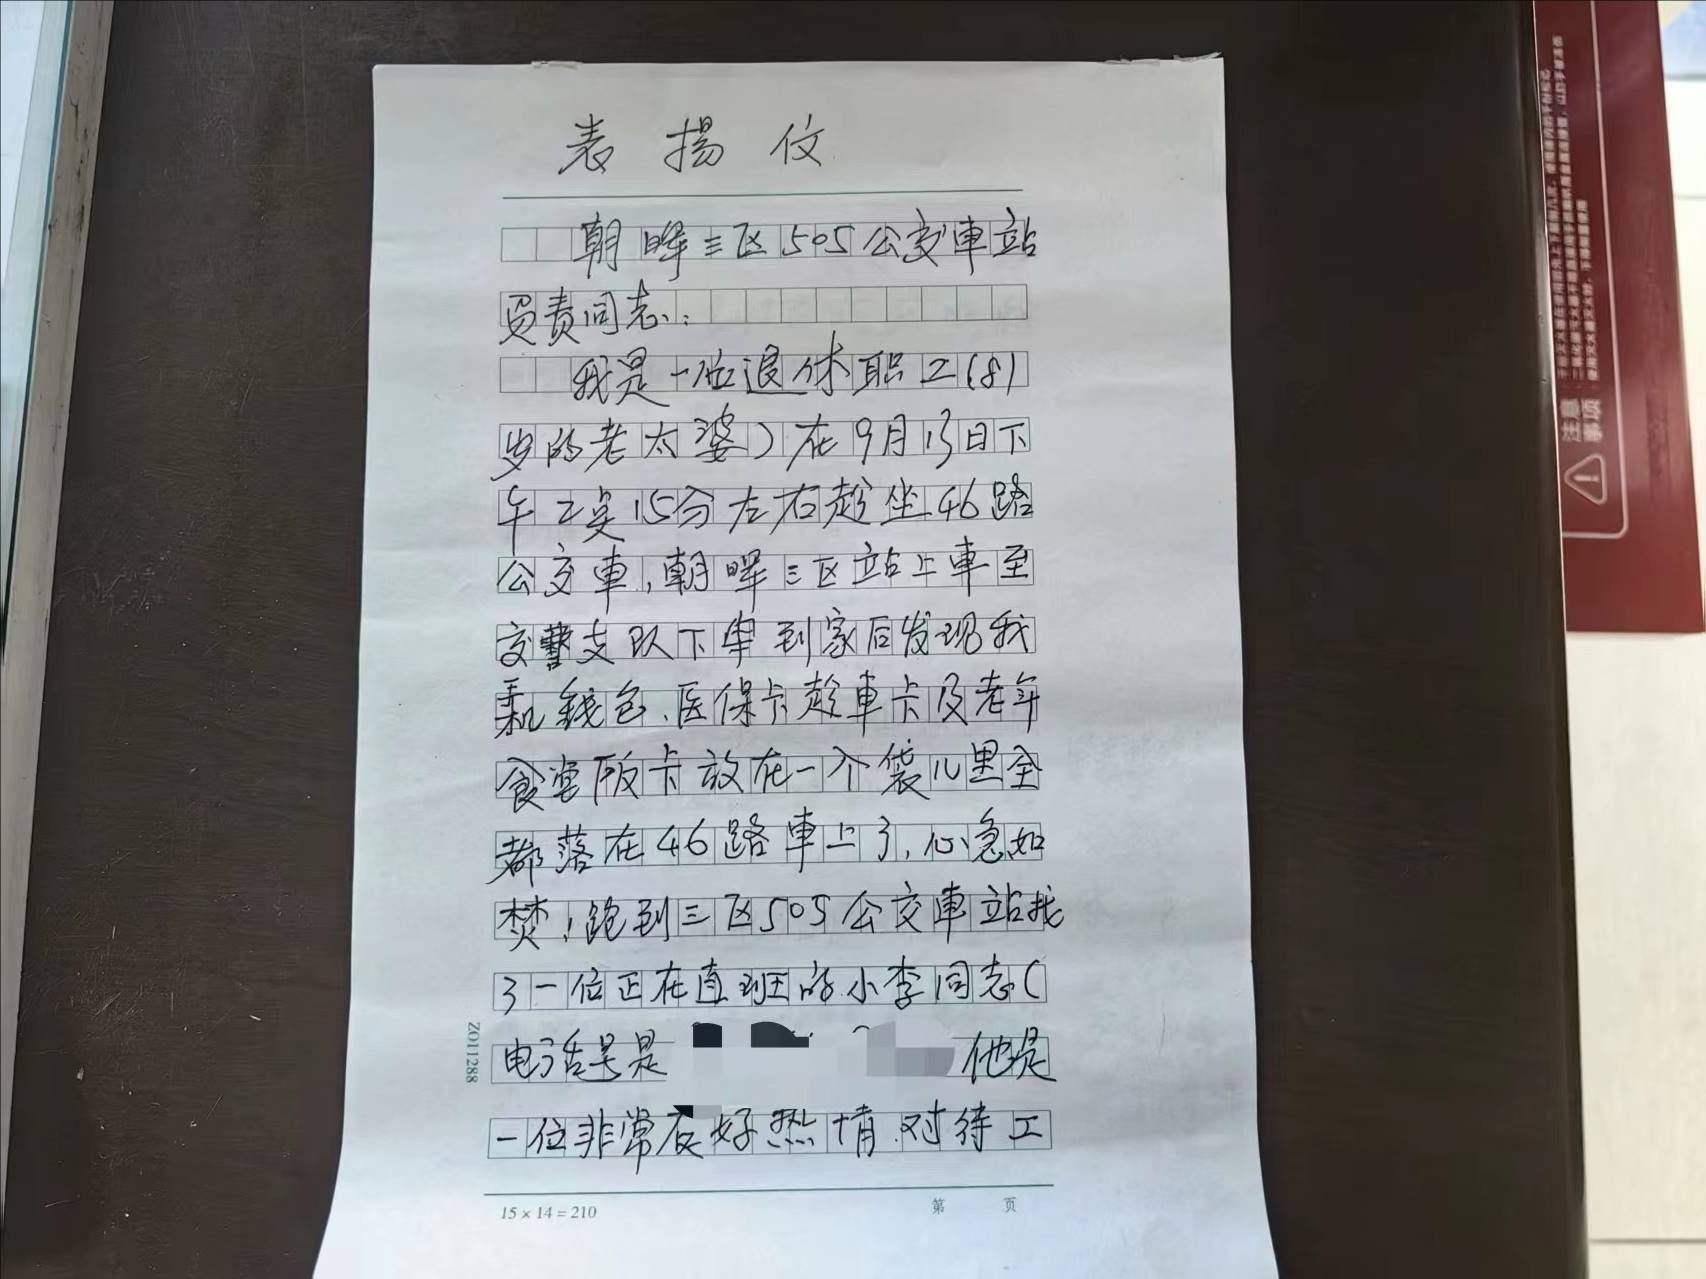 表揚信
朝晖三区505公交車站
负责同志：
我是一位退休职工(81
岁的老太婆)在9月13日下
午2点15分左右趁坐46路
公交車,朝晖三区站上車至
交警支队下車到家后发现我
手机錢包、医保卡趁車卡及老年
食堂饭卡放在一个袋儿里全
都落在46路車上了,心急如
焚,跑到三区505公交車站找
了一位正在直班的小李同志(
电话号是 他是
一位非常友好热情.对待工
15×14=210
第 页
ZO11288
注意
事项